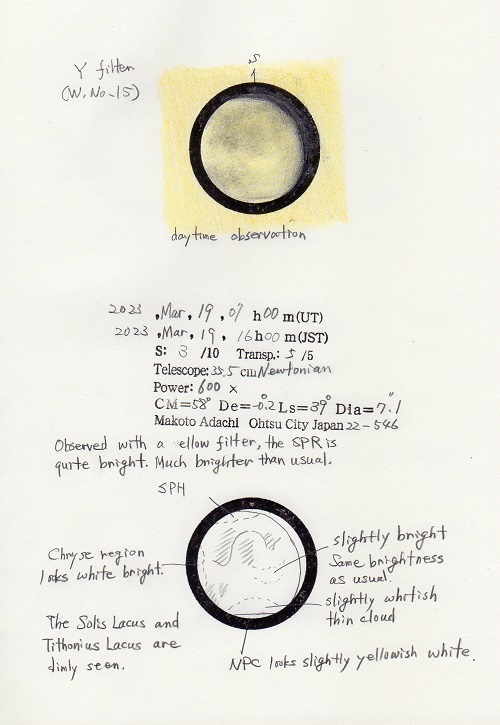 Y filter
(W. No. 15)
S
daytime observation
2023 , Mar, 19 , 07 h 00 m (UT)
2023 , Mar, 19 , 16 h 00 m (JST)
S: 3 /10 Transp.: 5 /5
Telescope: 35.5 cm Newtonian
Power: 600 x
CM=58° De=-0.2° Ls=39° Dia=7.1"
Makoto Adachi Ohtsu City Japan 22-546
Observed with a ellow filter, the SPR is
qurte bright. Much brighter than usual.
SPH
Chryse region
looks white bright.
slightly bright
Same brightness
as usual.
slightly whitish
thin cloud
The Solis Lacus and
Tithonius Lacus are
dimly seen.
NPC looks slightly yellowish white.